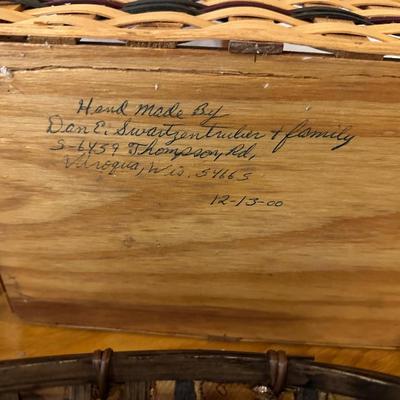 Hand Made By
Dan E. Swartzentruber + family
S-6459 Thompson, Rd,
Viroqua, Wis. 54665
12-13-00